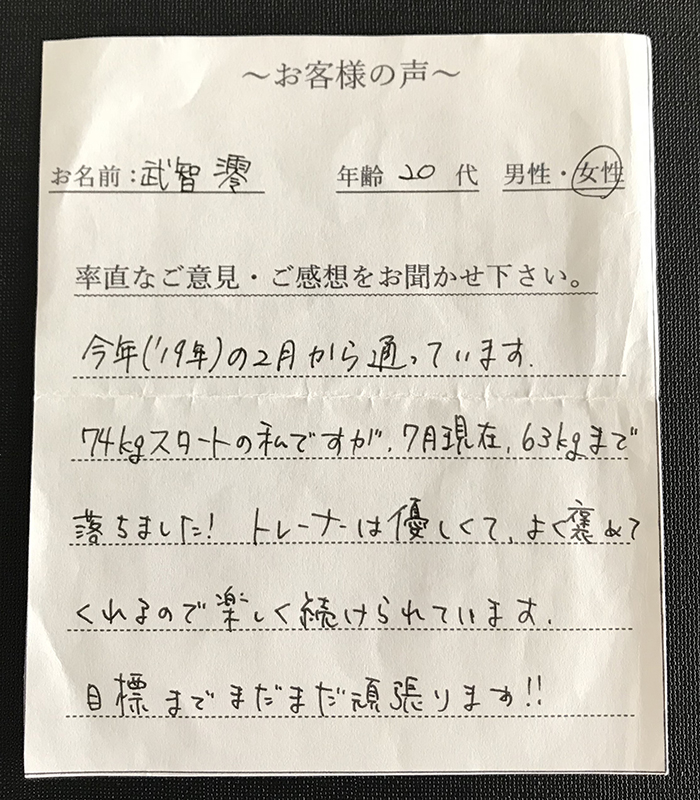 ～お客様の声～
お名前：武智 澪 年齢 20 代 男性・女性
率直なご意見・ご感想をお聞かせ下さい。
今年('19年)の2月から通っています.
74kgスタートの私ですが、7月現在、63kgまで
落ちました! トレーナーは優しくて、よく褒めて
くれるので楽しく続けられています.
目標までまだまだ頑張ります!!